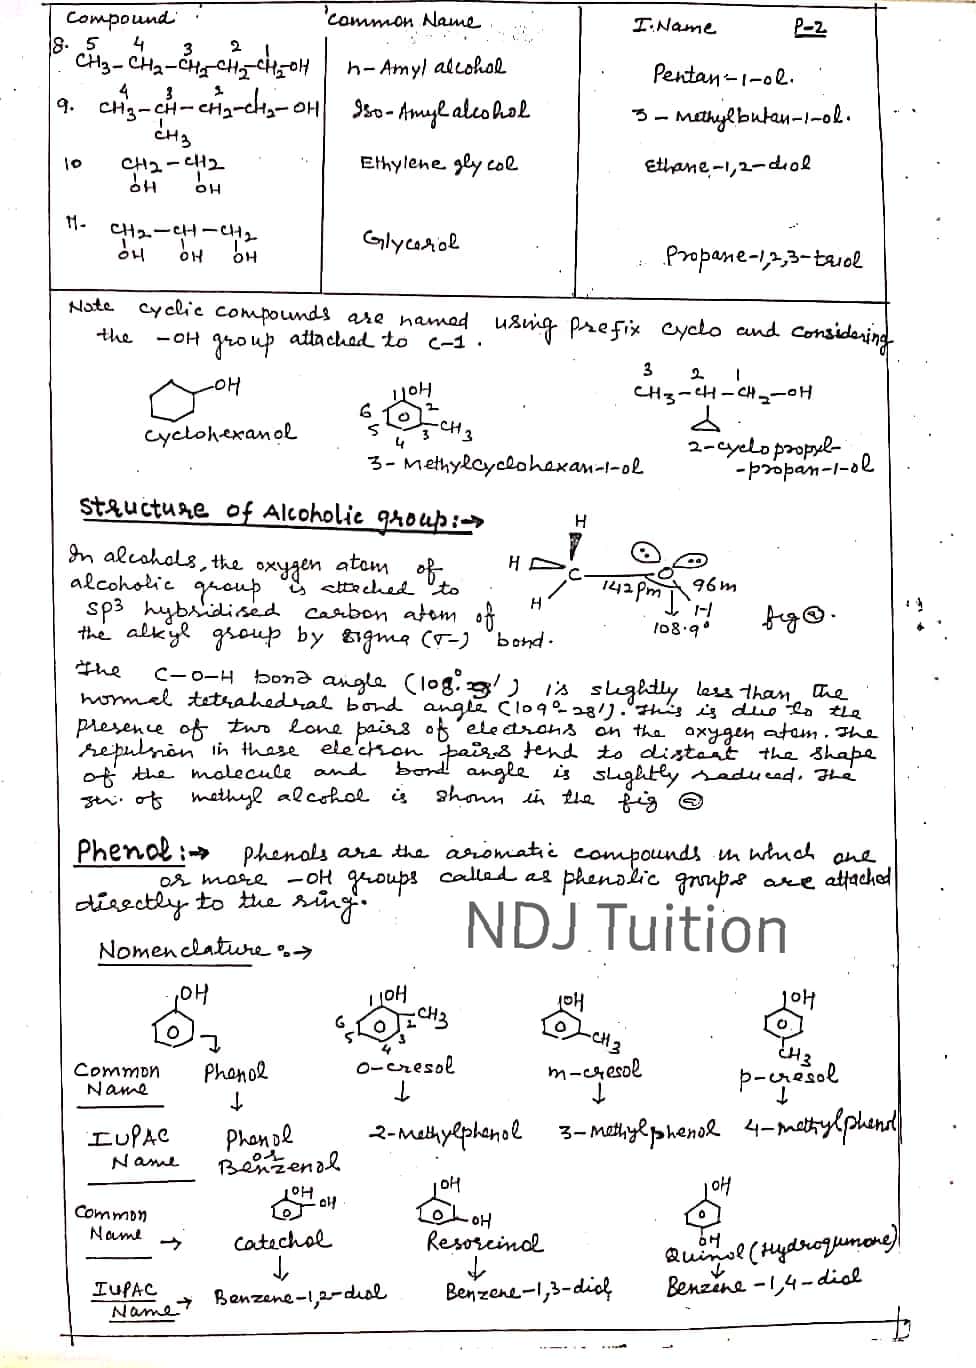 Compound
Common Name
I.Name P-2
8. 5 4 3 2 1
CH3-CH2-CH2-CH2-CH2OH
n-Amyl alcohol
Pentan-1-ol.
4 3 2
9. CH3-CH-CH2-CH2-OH
CH3
Iso-Amyl alcohol
3-Methylbutan-1-ol.
10 CH2-CH2
OH OH
Ethylene glycol
Ethane-1,2-diol
11. CH2-CH-CH2
OH OH OH
Glycerol
Propane-1,2,3-triol
Note cyclic compounds are named using prefix cyclo and considering
the -OH group attached to C-1.
OH
cyclohexanol
1 OH
6 2
5 3 CH3
4
3-Methylcyclohexan-1-ol
3 2 1
CH3-CH-CH2-OH
2-cyclopropyl-
-propan-1-ol
Structure of Alcoholic group:→
In alcohols, the oxygen atom of
alcoholic group is attached to
sp3 hybridised carbon atom of
the alkyl group by sigma (σ-) bond.
H
H C O
142pm 96m
H H
108.9°
fig ⓐ.
The C-O-H bond angle is slightly less than the
normal tetrahedral bond angle (109°-28'). This is due to the
presence of two lone pairs of electrons on the oxygen atom. The
repulsion in these electron pairs tend to distort the shape
of the molecule and bond angle is slightly reduced. The
str. of methyl alcohol is shown in the fig ⓐ
Phenol:→ phenols are the aromatic compounds in which one
or more -OH groups called as phenolic groups are attached
directly to the ring.
NDJ Tuition
Nomenclature :→
OH
1 OH
6 2 CH3
5 3
4
OH
CH3
OH
CH3
Common Name
Phenol
o-cresol
m-cresol
p-cresol
IUPAC Name
Phenol
or
Benzenol
2-Methylphenol
3-Methylphenol
4-methylphenol
OH
OH
OH
OH
OH
OH
Common Name →
Catechol
Resorcinol
Quinol (Hydroqumone)
IUPAC Name →
Benzene-1,2-diol
Benzene-1,3-diol
Benzene-1,4-diol